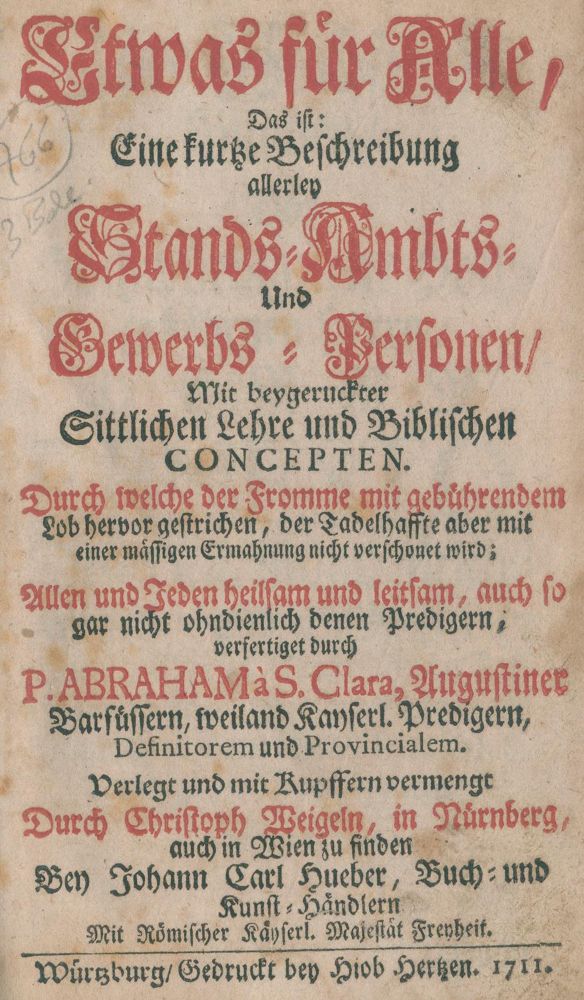 Etwas für Alle,
Das ist:
Eine kurtze Beschreibung
allerley
Stands-Ambts-
Und
Gewerbs-Personen/
Mit beygeruckter
Sittlichen Lehre und Biblischen
CONCEPTEN.
Durch welche der Fromme mit gebührendem
Lob hervor gestrichen, der Tadelhaffte aber mit
einer mässigen Ermahnung nicht verschonet wird;
Allen und Jeden heilsam und leitsam, auch so
gar nicht ohndienlich denen Predigern,
verfertiget durch
P. ABRAHAM à S. Clara, Augustiner
Barfüssern, weiland Kayserl. Predigern,
Definitorem und Provincialem.
Verlegt und mit Kupffern vermengt
Durch Christoph Weigeln, in Nürnberg,
auch in Wien zu finden
Bey Johann Carl Hueber, Buch- und
Kunst-Händlern
Mit Römischer Käyserl. Majestät Freyheit.
Würtzburg/ Gedruckt bey Hiob Hertzen. 1711.
766
3 Bde.